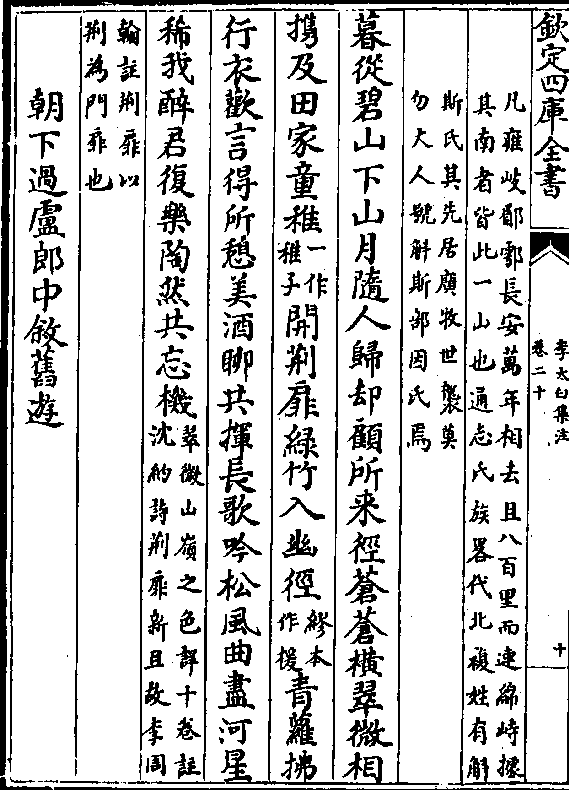 欽定四庫全書
李太白集注
卷二十
十
凡雍岐郿鄠長安萬年相去且八百里而連綿峙據
其南者皆此一山也通志氏族略代北複姓有斛
斯氏其先居廣牧世襲莫
勿大人號斛斯部因氏焉
暮從碧山下山月隨人歸却顧所来徑蒼蒼橫翠微相
攜及田家童稚一作稚子開荆扉緑竹入幽徑繆本作援青蘿拂
行衣歡言得所憩美酒聊共揮長歌吟松風曲盡河星
稀我醉君復樂陶然共忘機萃微山嶺之色詳十卷註沈約詩荆扉新且故李周
翰註荆扉以
荆為門扉也
朝下過盧郎中敘舊遊